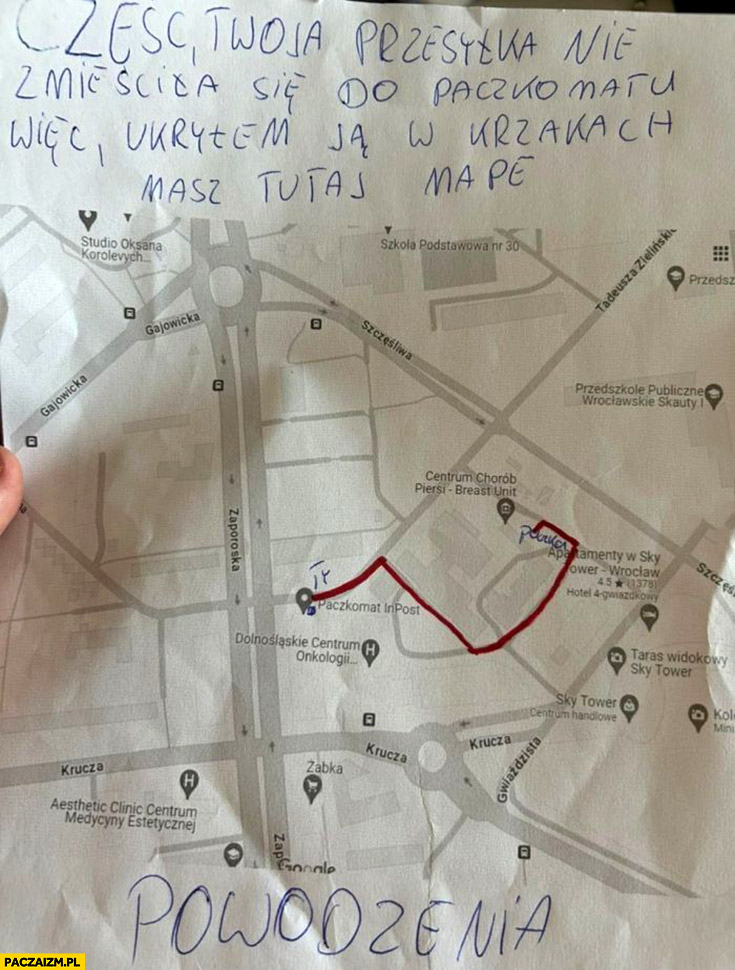 CZEŚĆ, TWOJA PRZESYŁKA NIE
ZMIEŚCIŁA SIĘ DO PACZKOMATU
WIĘC, UKRYŁEM JĄ W KRZAKACH
MASZ TUTAJ MAPE
Studio Oksana
Korolevych...
Szkoła Podstawowa nr 30
Tadeusza Zieliński
Przedsz
Gajowicka
Szczęśliwa
Gajowicka
Przedszkole Publiczne
Wrocławskie Skauty I
Centrum Chorób
Piersi - Breast Unit
Zaporoska
PACZKA
Apartamenty w Sky
Tower - Wrocław
4.5 ★ (1378)
Hotel 4-gwiazdkowy
Szczęś
TY
Paczkomat InPost
Dolnośląskie Centrum
Onkologii...
Taras widokowy
Sky Tower
Sky Tower
Centrum handlowe
Kol
Mini
Krucza
Krucza
Krucza
Gwiaździsta
Żabka
Aesthetic Clinic Centrum
Medycyny Estetycznej
Zap
Google
POWODZENIA
PACZAIZM.PL